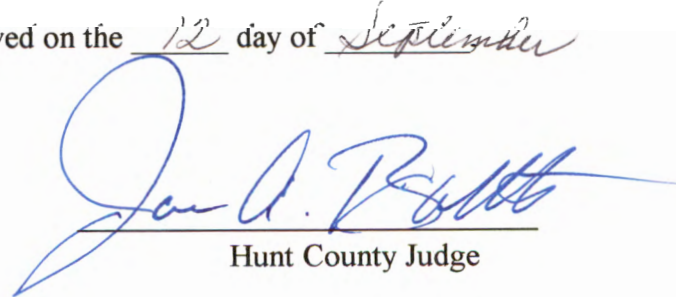 ved on the 12 day of September
A.
Hunt County Judge